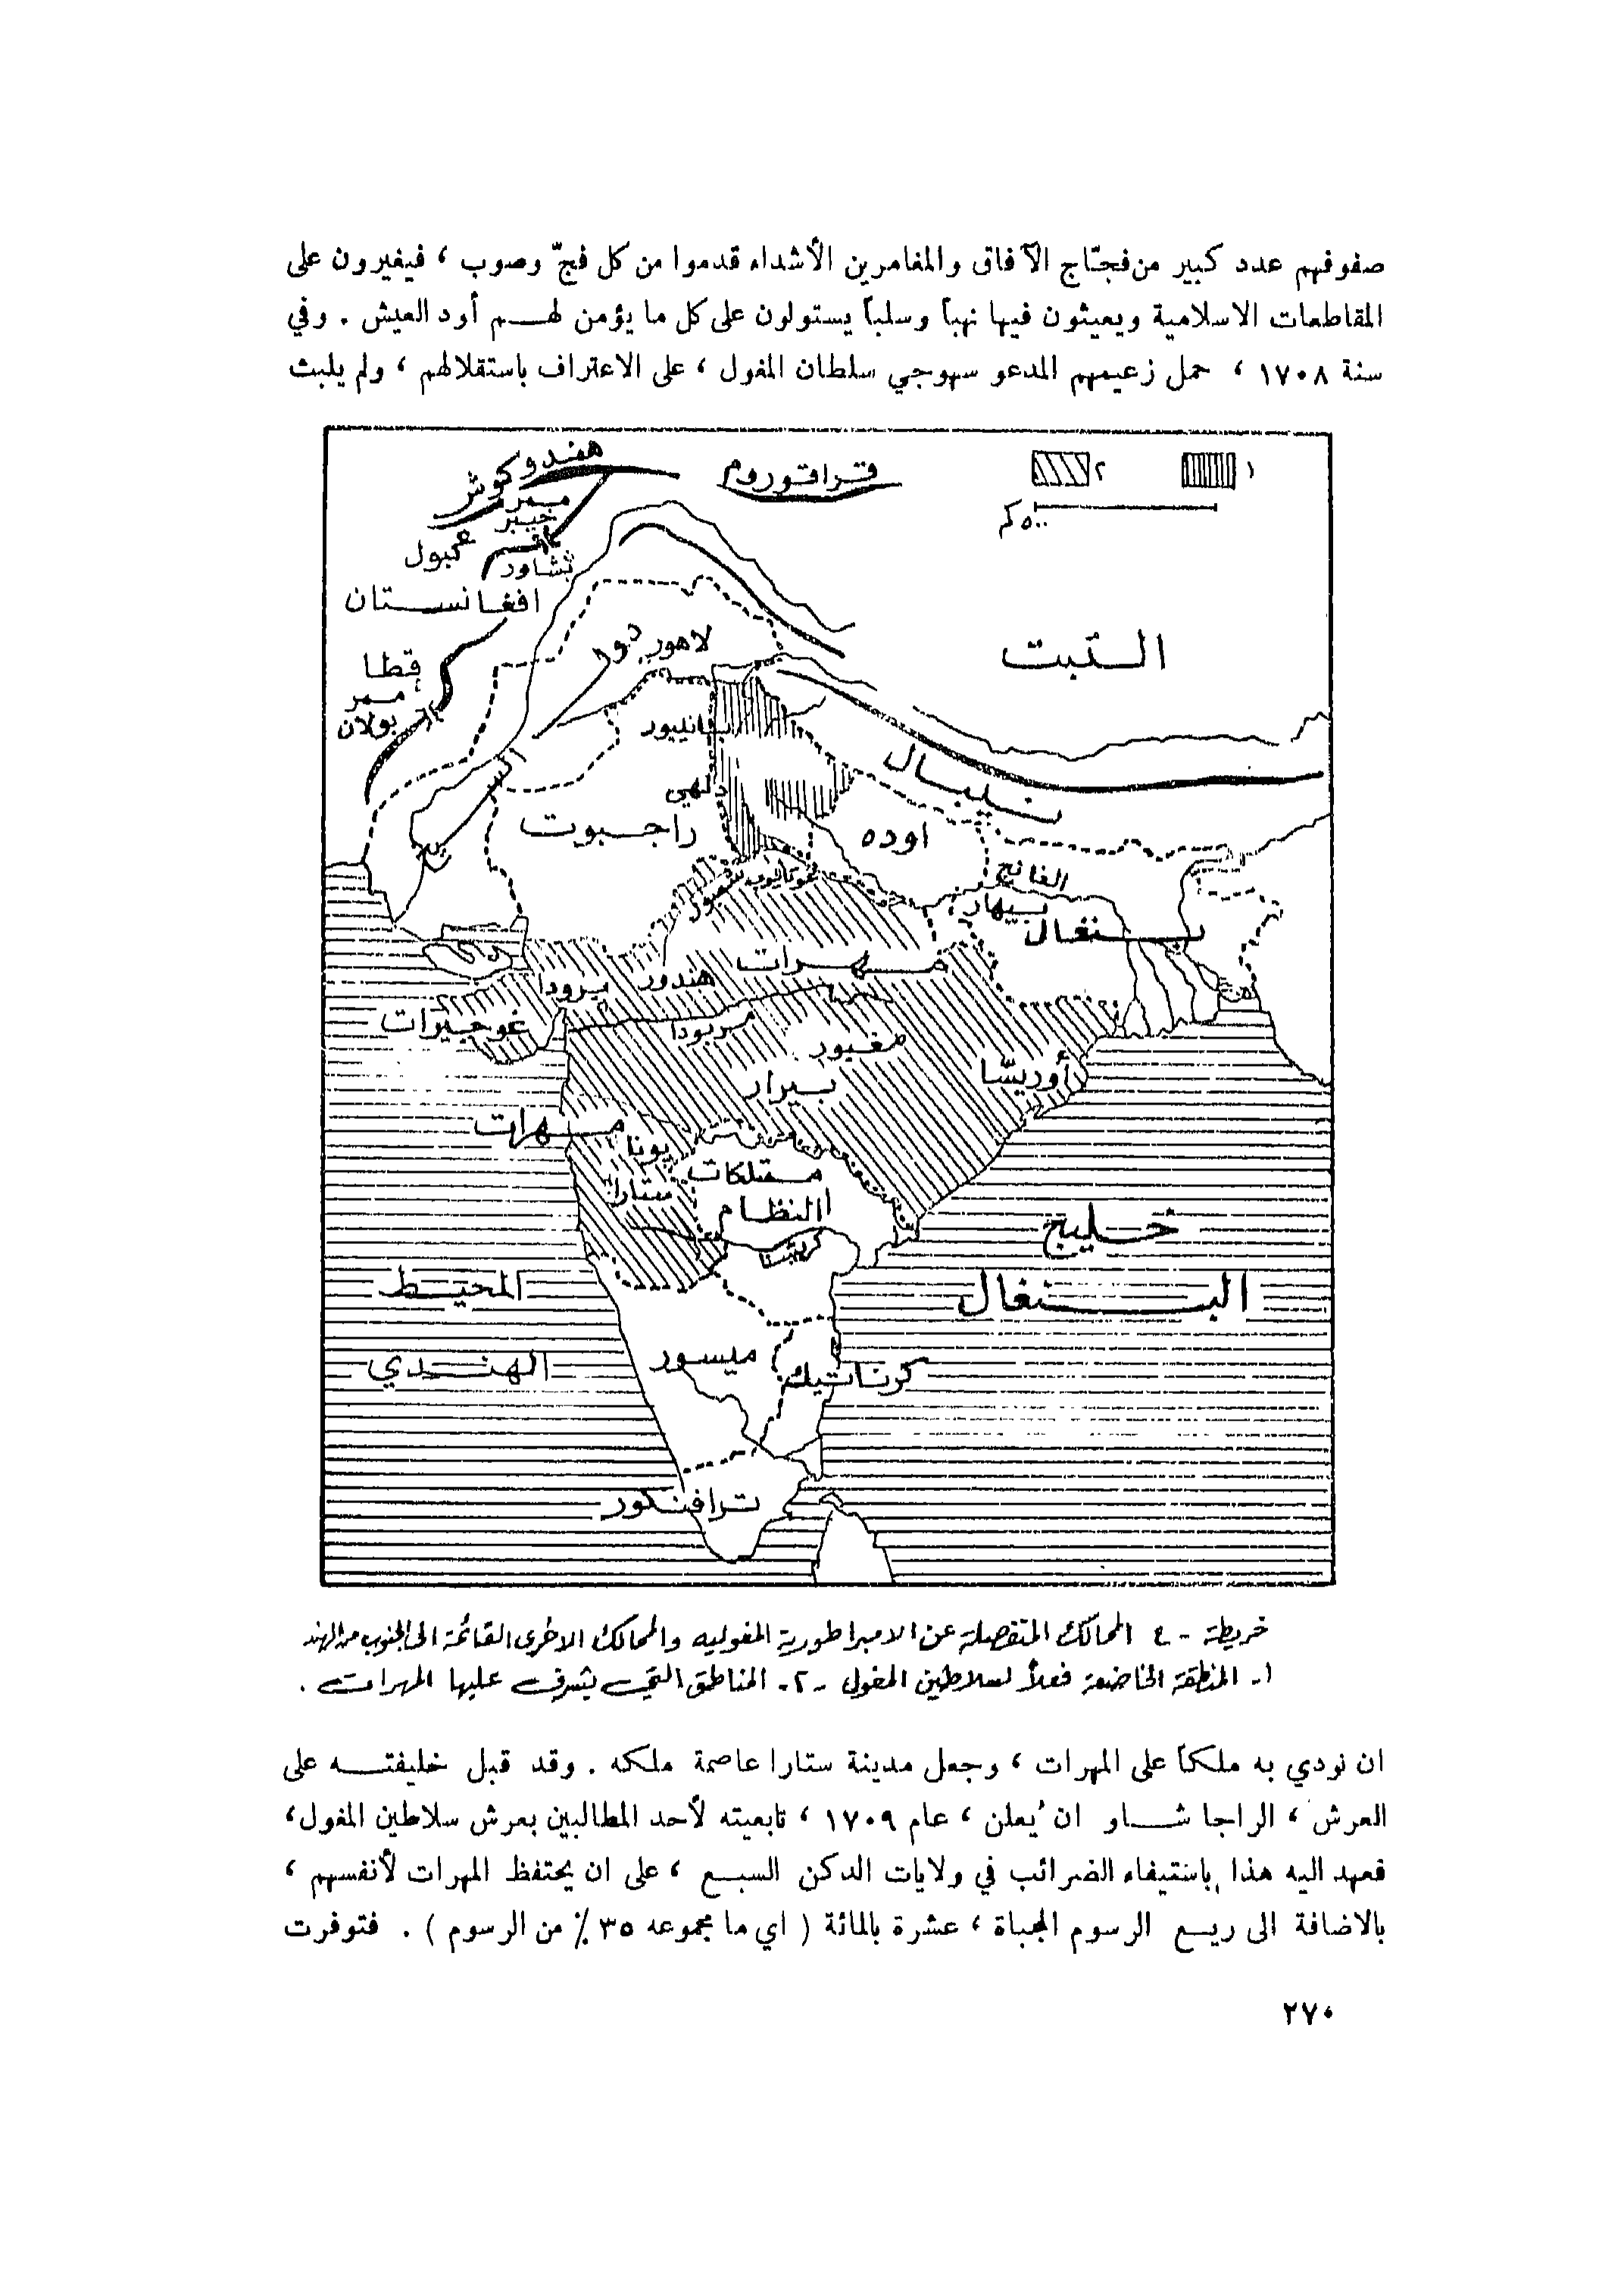 صفوفهم عدد كبير من فجّاج الآفاق والمغامرين الأشداء قدموا من كل فجّ وصوب ، فيغيرون على
المقاطعات الاسلامية ويعيثون فيها نهباً وسلباً يستولون على كل ما يؤمن لهم أود العيش . وفي
سنة ١٧٠٨ ، حمل زعيمهم المدعو سهوجي سلطان المغول ، على الاعتراف باستقلالهم ، ولم يلبث
هندوكوش
قراقوروم
٢
١
٥٠٠ كم
ممر
خيبر
بشاور
افغانستان
التبت
لاهور
قطا
ممر
بولان
نيبال
دلهي
راجبوت
اوده
الغانج
بيهار
بنغال
مهرات
هندور
برودا
غوجيرات
نربودا
بيرار
أوريسّا
مهرات
پونا
ستارا
ممتلكات
النظام
خليج
البنغال
المحيط
الهندي
ميسور
كرناتيك
ترافنكور
خريطة - ٤ الممالك المنفصلة عن الامبراطورية المغولية والممالك الاخرى القائمة الى الجنوب من الهند
١- المنطقة الخاضعة فعلاً لسلاطين المغول -٢- المناطق التي يشرف عليها المهرات .
ان نودي به ملكاً على المهرات ، وجعل مدينة ستارا عاصمة ملكه . وقد قبل خليفته على
العرش ، الراجا شاو ان يُعلن ، عام ١٧٠٩ ، تابعيته لأحد المطالبين بعرش سلاطين المغول ،
فعهد اليه هذا باستيفاء الضرائب في ولايات الدكن السبع ، على ان يحتفظ المهرات لأنفسهم ،
بالاضافة الى ربع الرسوم المجباة ، عشرة بالمائة ( اي ما مجموعه ٣٥ ٪ من الرسوم ) . فتوفرت
٢٧٠